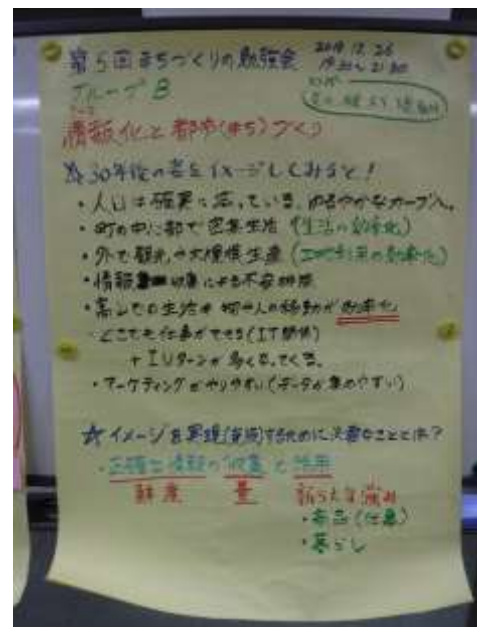 第5回まちづくりの勉強会
2019.12.26
19:30〜21:30
グループB
テーマ
情報化と都市(まち)づくり
☆30年後の姿をイメージしてみると!
・人口は確実に減っている、ゆるやかなカーブへ。
・町の中心部で密集生活(生活の効率化)
・外で観光や大規模生産(土地利用の効率化)
・情報収集による不安排除
・暮しでの生活は物や人の移動が効率化
・どこでも仕事ができる(IT関係)
+IUターンが多くなってくる。
・マーケティングがやりやすい(データが集めやすい)
☆イメージを実現(実施)するために大事なことは?
・正確な情報の収集と活用
鮮度 量 新たな強み
・商品(仕事)
・暮らし